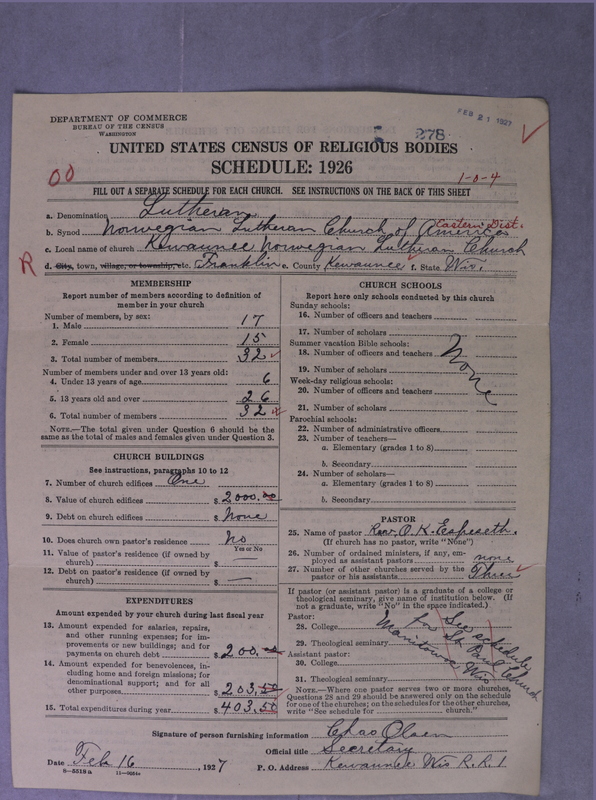 DEPARTMENT OF COMMERCE
BUREAU OF THE CENSUS
WASHINGTON
FEB 21 1927
278
UNITED STATES CENSUS OF RELIGIOUS BODIES
SCHEDULE: 1926
1-0-4
FILL OUT A SEPARATE SCHEDULE FOR EACH CHURCH. SEE INSTRUCTIONS ON THE BACK OF THIS SHEET
a. Denomination Lutheran
b. Synod Norwegian Lutheran Church of America Eastern Dist.
c. Local name of church Kewaunee Norwegian Lutheran Church
R d. City, town, village, or township, etc. Franklin e. County Kewaunee f. State Wis.
MEMBERSHIP
Report number of members according to definition of
member in your church
Number of members, by sex:
1. Male 17
2. Female 15
3. Total number of members 32
Number of members under and over 13 years old:
4. Under 13 years of age 6
5. 13 years old and over 26
6. Total number of members 32
NOTE.—The total given under Question 6 should be
the same as the total of males and females given under Question 3.
CHURCH BUILDINGS
See instructions, paragraphs 10 to 12
7. Number of church edifices One
8. Value of church edifices $ 2000.00
9. Debt on church edifices $ None
10. Does church own pastor's residence No
Yes or No
11. Value of pastor's residence (if owned by
church) $ —
12. Debt on pastor's residence (if owned by
church) $ —
EXPENDITURES
Amount expended by your church during last fiscal year
13. Amount expended for salaries, repairs,
and other running expenses; for im-
provements or new buildings; and for
payments on church debt $ 200.
14. Amount expended for benevolences, in-
cluding home and foreign missions; for
denominational support; and for all
other purposes $ 203.50
15. Total expenditures during year $ 403.50
CHURCH SCHOOLS
Report here only schools conducted by this church
Sunday schools:
16. Number of officers and teachers
17. Number of scholars
Summer vacation Bible schools:
18. Number of officers and teachers
None
19. Number of scholars
Week-day religious schools:
20. Number of officers and teachers
21. Number of scholars
Parochial schools:
22. Number of administrative officers
23. Number of teachers—
a. Elementary (grades 1 to 8)
b. Secondary
24. Number of scholars—
a. Elementary (grades 1 to 8)
b. Secondary
PASTOR
25. Name of pastor Rev. O. K. Espeseth.
(If church has no pastor, write "None")
26. Number of ordained ministers, if any, em-
ployed as assistant pastors none
27. Number of other churches served by the
pastor or his assistants Three
If pastor (or assistant pastor) is a graduate of a college or
theological seminary, give name of institution below. (If
not a graduate, write "No" in the space indicated.)
Pastor:
28. College
29. Theological seminary
Assistant pastor:
30. College
31. Theological seminary
See schedule
for St Paul Church
Manitowoc Wis
NOTE.—Where one pastor serves two or more churches,
Questions 28 and 29 should be answered only on the schedule
for one of the churches; on the schedules for the other churches,
write "See schedule for church."
Signature of person furnishing information Chas Olsen
Official title Secretary
Date Feb 16, 1927 P. O. Address Kewaunee Wis R.R. 1
8—5518 a